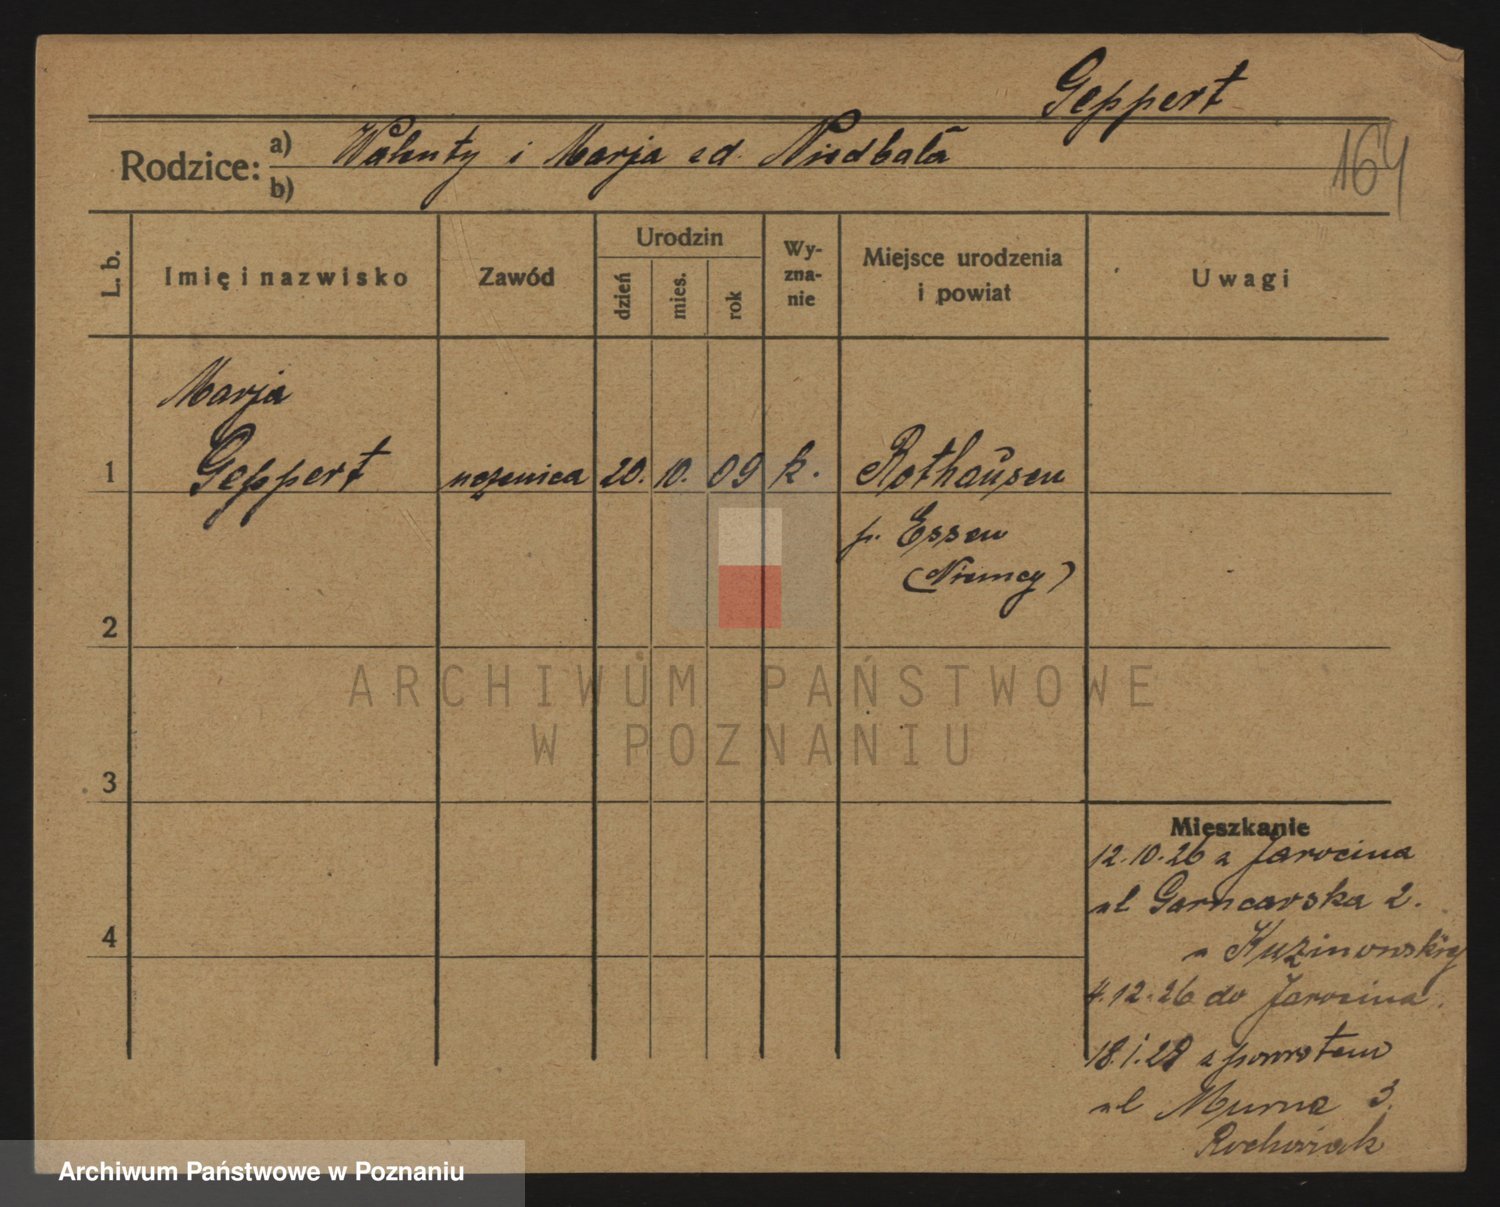 Geppert
164
Rodzice: a) Walenty i Marja zd. Niedbała
b)
L. b. Imię i nazwisko Zawód Urodzin dzień mies. rok Wy-zna-nie Miejsce urodzenia i powiat Uwagi
Marja
1 Geppert uczenica 20. 10. 09 k. Rothausen
p. Essen
(Niemcy)
2
ARCHIWUM PAŃSTWOWE
W POZNANIU
3
Mieszkanie
12.10.26 z Jarocina
ul Garncarska 2.
4
4.12.26 do Jarocina.
18.1.28 z powrotem
ul Murna 3.
Rochowiak
Archiwum Państwowe w Poznaniu